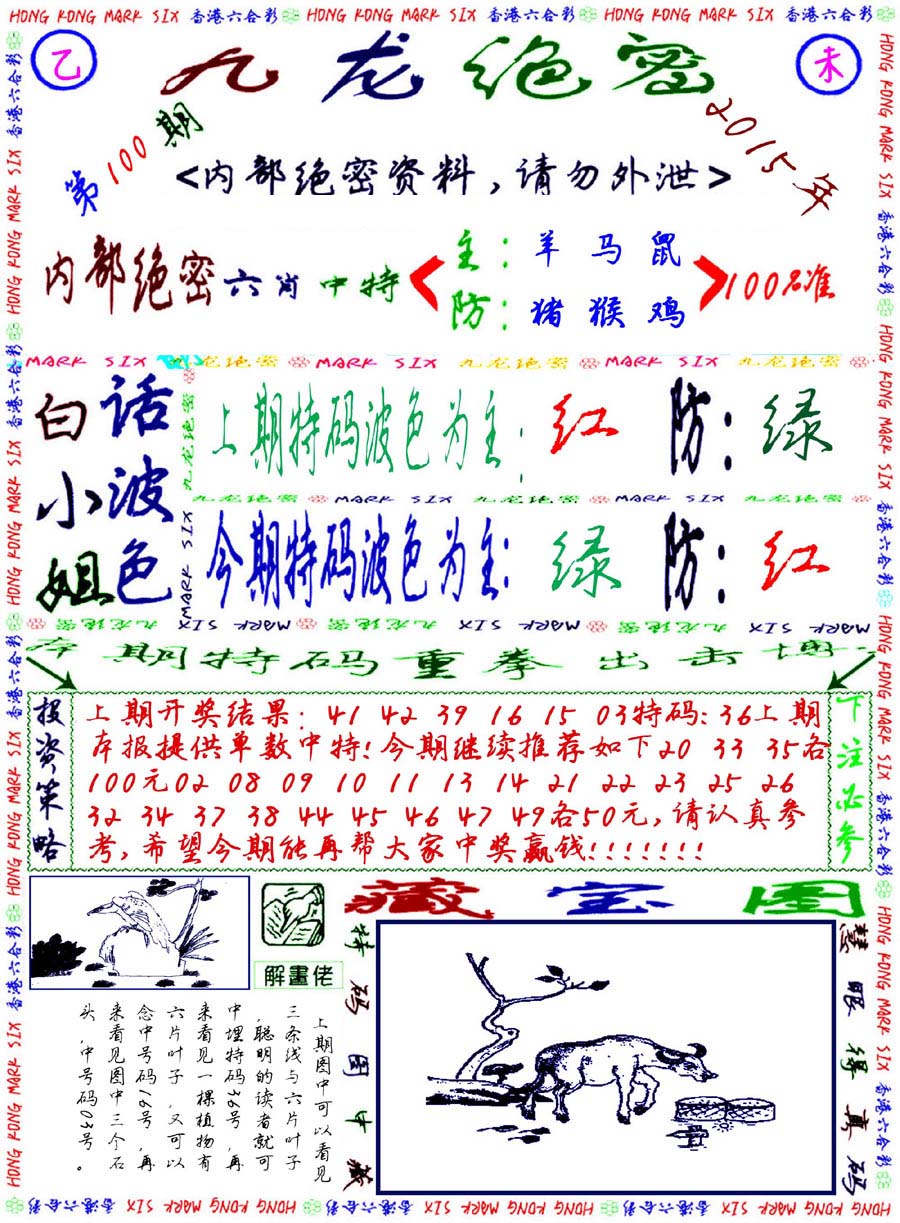 HONG KONG MARK SIX 香港六合彩 HONG KONG MARK SIX 香港六合彩 HONG KONG MARK SIX 香港六合彩
乙
九龙绝密
未
第100期
2015年
<内部绝密资料,请勿外泄>
内部绝密六肖中特
主:羊马鼠
防:猪猴鸡
100%准
MARK SIX 九龙绝密 MARK SIX 九龙绝密 MARK SIX 九龙绝密
白话
小波
姐色
上期特码波色为主:红 防:绿
九龙绝密 MARK SIX 九龙绝密 MARK SIX 九龙绝密
今期特码波色为主:绿 防:红
九龙绝密 MARK SIX 九龙绝密 MARK SIX 九龙绝密 MARK SIX
本期特码重拳出击
投资策略
上期开奖结果:41 42 39 16 15 03特码:36上期
本报提供单数中特!今期继续推荐如下20 33 35各
100元02 08 09 10 11 13 14 21 22 23 25 26
32 34 37 38 44 45 46 47 49各50元,请认真参
考,希望今期能再帮大家中奖赢钱!!!!!!!
下注必参
藏宝图
解畫佬
上期图中可以看见
三条线与六片叶子
,聪明的读者就可
中埋特码36号,再
来看见一棵植物有
六片叶子,又可以
念中号码16号,再
来看见图中三个石
头,中号码03号。
特码图中藏
慧眼得真码
HONG KONG MARK SIX 香港六合彩 HONG KONG MARK SIX 香港六合彩 HONG KONG MARK SIX 香港六合彩